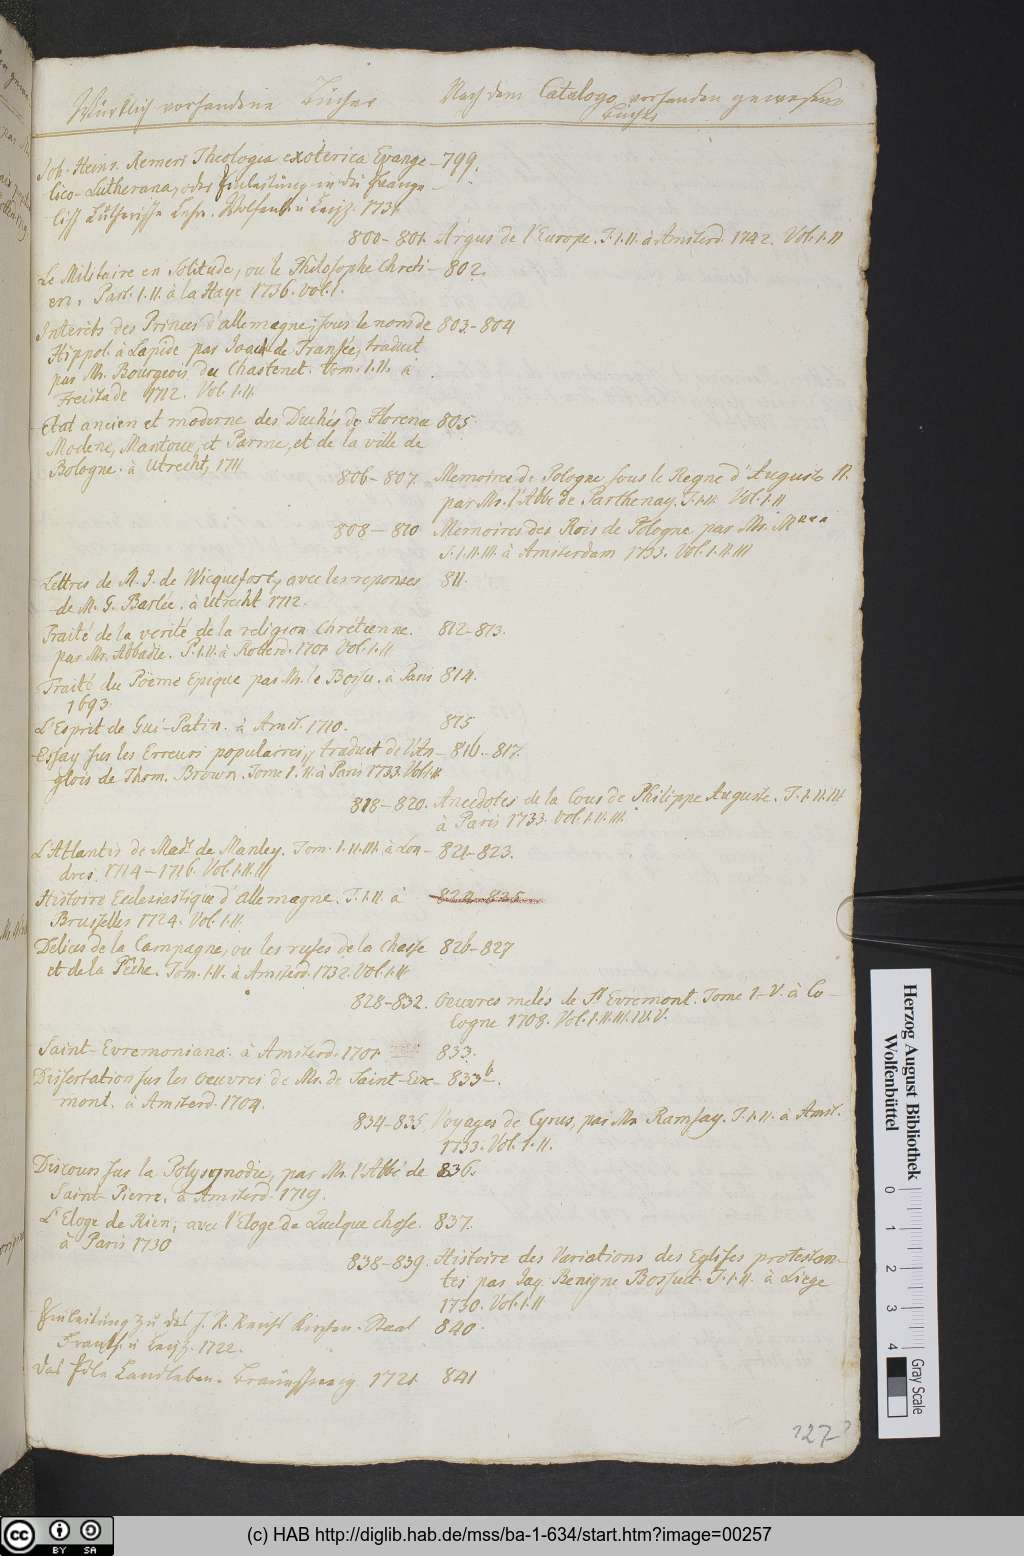 Würklich vorhandene Bücher
Nach dem Catalogo vorhanden gewesene
Bücher
Joh. Heinr. Remeri Theologia exoterica Evange- 799.
lico-Lutherana, oder Einleitung in die Evange-
lisch Lutherische Lehr. Wolfenb. u Leipz. 1731.
800-801. Argus de l'Europe. T. I. II. à Amsterd. 1742. Vol. I. II
Le Militaire en Solitude, ou le Philosophe Chreti- 802.
en. Part. I. II. à la Haye 1736. Vol. I.
Interêts des Princes d'allemagne, sous le nom de 803-804
Hippol. à Lapide par de Transée, traduit
par Mr. Bourgeois du Chastenet. Tom. I. II. à
Freistade 1712. Vol. I. II.
Etat ancien et moderne des Duchés de Florence 805.
Modene, Mantoue, et Parme, et de la ville de
Bologne. à Utrecht, 1711
806-807. Memoires de Pologne, sous le Regne d'Auguste II.
par Mr. l'Abbé de Parthenay. T. I. II. Vol. I. II
808-810 Memoires des Rois de Pologne par Mr. M***
T. I. II. III. à Amsterdam 1733. Vol. I. II. III
Lettres de M. J. de Wicquefort, avec les reponses 811.
de M. G. Barlée. à Utrecht 1712.
Traité de la verité de la religion Chrétienne. 812-813.
par Mr. Abbadie. P. I. II. à Rotterd. 1701. Vol. I. II
Traité du Poeme Epique par Mr. le Bossu. à Paris 814.
1693.
L'Esprit de Gui-Patin. à Amst. 1710. 815
Essay sur les Erreurs populaires, traduit de l'An- 816-817.
glois de Thom. Brown. Tome I. II. à Paris 1733. Vol. I. II.
818-820. Anecdotes de la Cour de Philippe Auguste. T. I. II. III
à Paris 1733. Vol. I. II. III.
L'Atlantis de Mad. de Manley. Tom. I. II. III. à Lon- 821-823.
dres. 1714-1716. Vol. I. II. III
Histoire Ecclesiastique d'allemagne. T. I. II. à 824-825.
Bruxelles 1724. Vol. I. II.
Delices de la Campagne, ou les ruses de la chasse 826-827
et de la Pêche. Tom. I. II. à Amsterd. 1732. Vol. I. II
828-832. Oeuvres melés de St Evremont. Tome I-V. à Co-
logne 1708. Vol. I. II. III. IV. V.
Saint-Evremoniana. à Amsterd. 1701 833.
Dissertation sur les Oeuvres de Mr. de Saint-Evre- 833b.
mont. à Amsterd. 1704.
834-835. Voyages de Cyrus, par Mr. Ramsay. T. I. II. à Amst.
1733. Vol. I. II.
Discours sur la Polysynodie, par Mr. l'Abbé de 836.
Saint-Pierre. à Amsterd. 1719.
L'Eloge de Rien, avec l'Eloge de Quelque chose. 837.
à Paris 1730
838-839. Histoire des Variations des Eglises protestan-
tes par Jaq. Benigne Bossuet. T. I. II. à Liege
1730. Vol. I. II
Einleitung zu des H. R. Reichs Kirchen-Staat 840.
Franckf. u Leipz. 1722.
Das Edle Landleben. Braunschweig 1721 841
127
Herzog August Bibliothek
Wolfenbüttel
0 1 2 3 4
Gray Scale
cc BY SA
(c) HAB http://diglib.hab.de/mss/ba-1-634/start.htm?image=00257